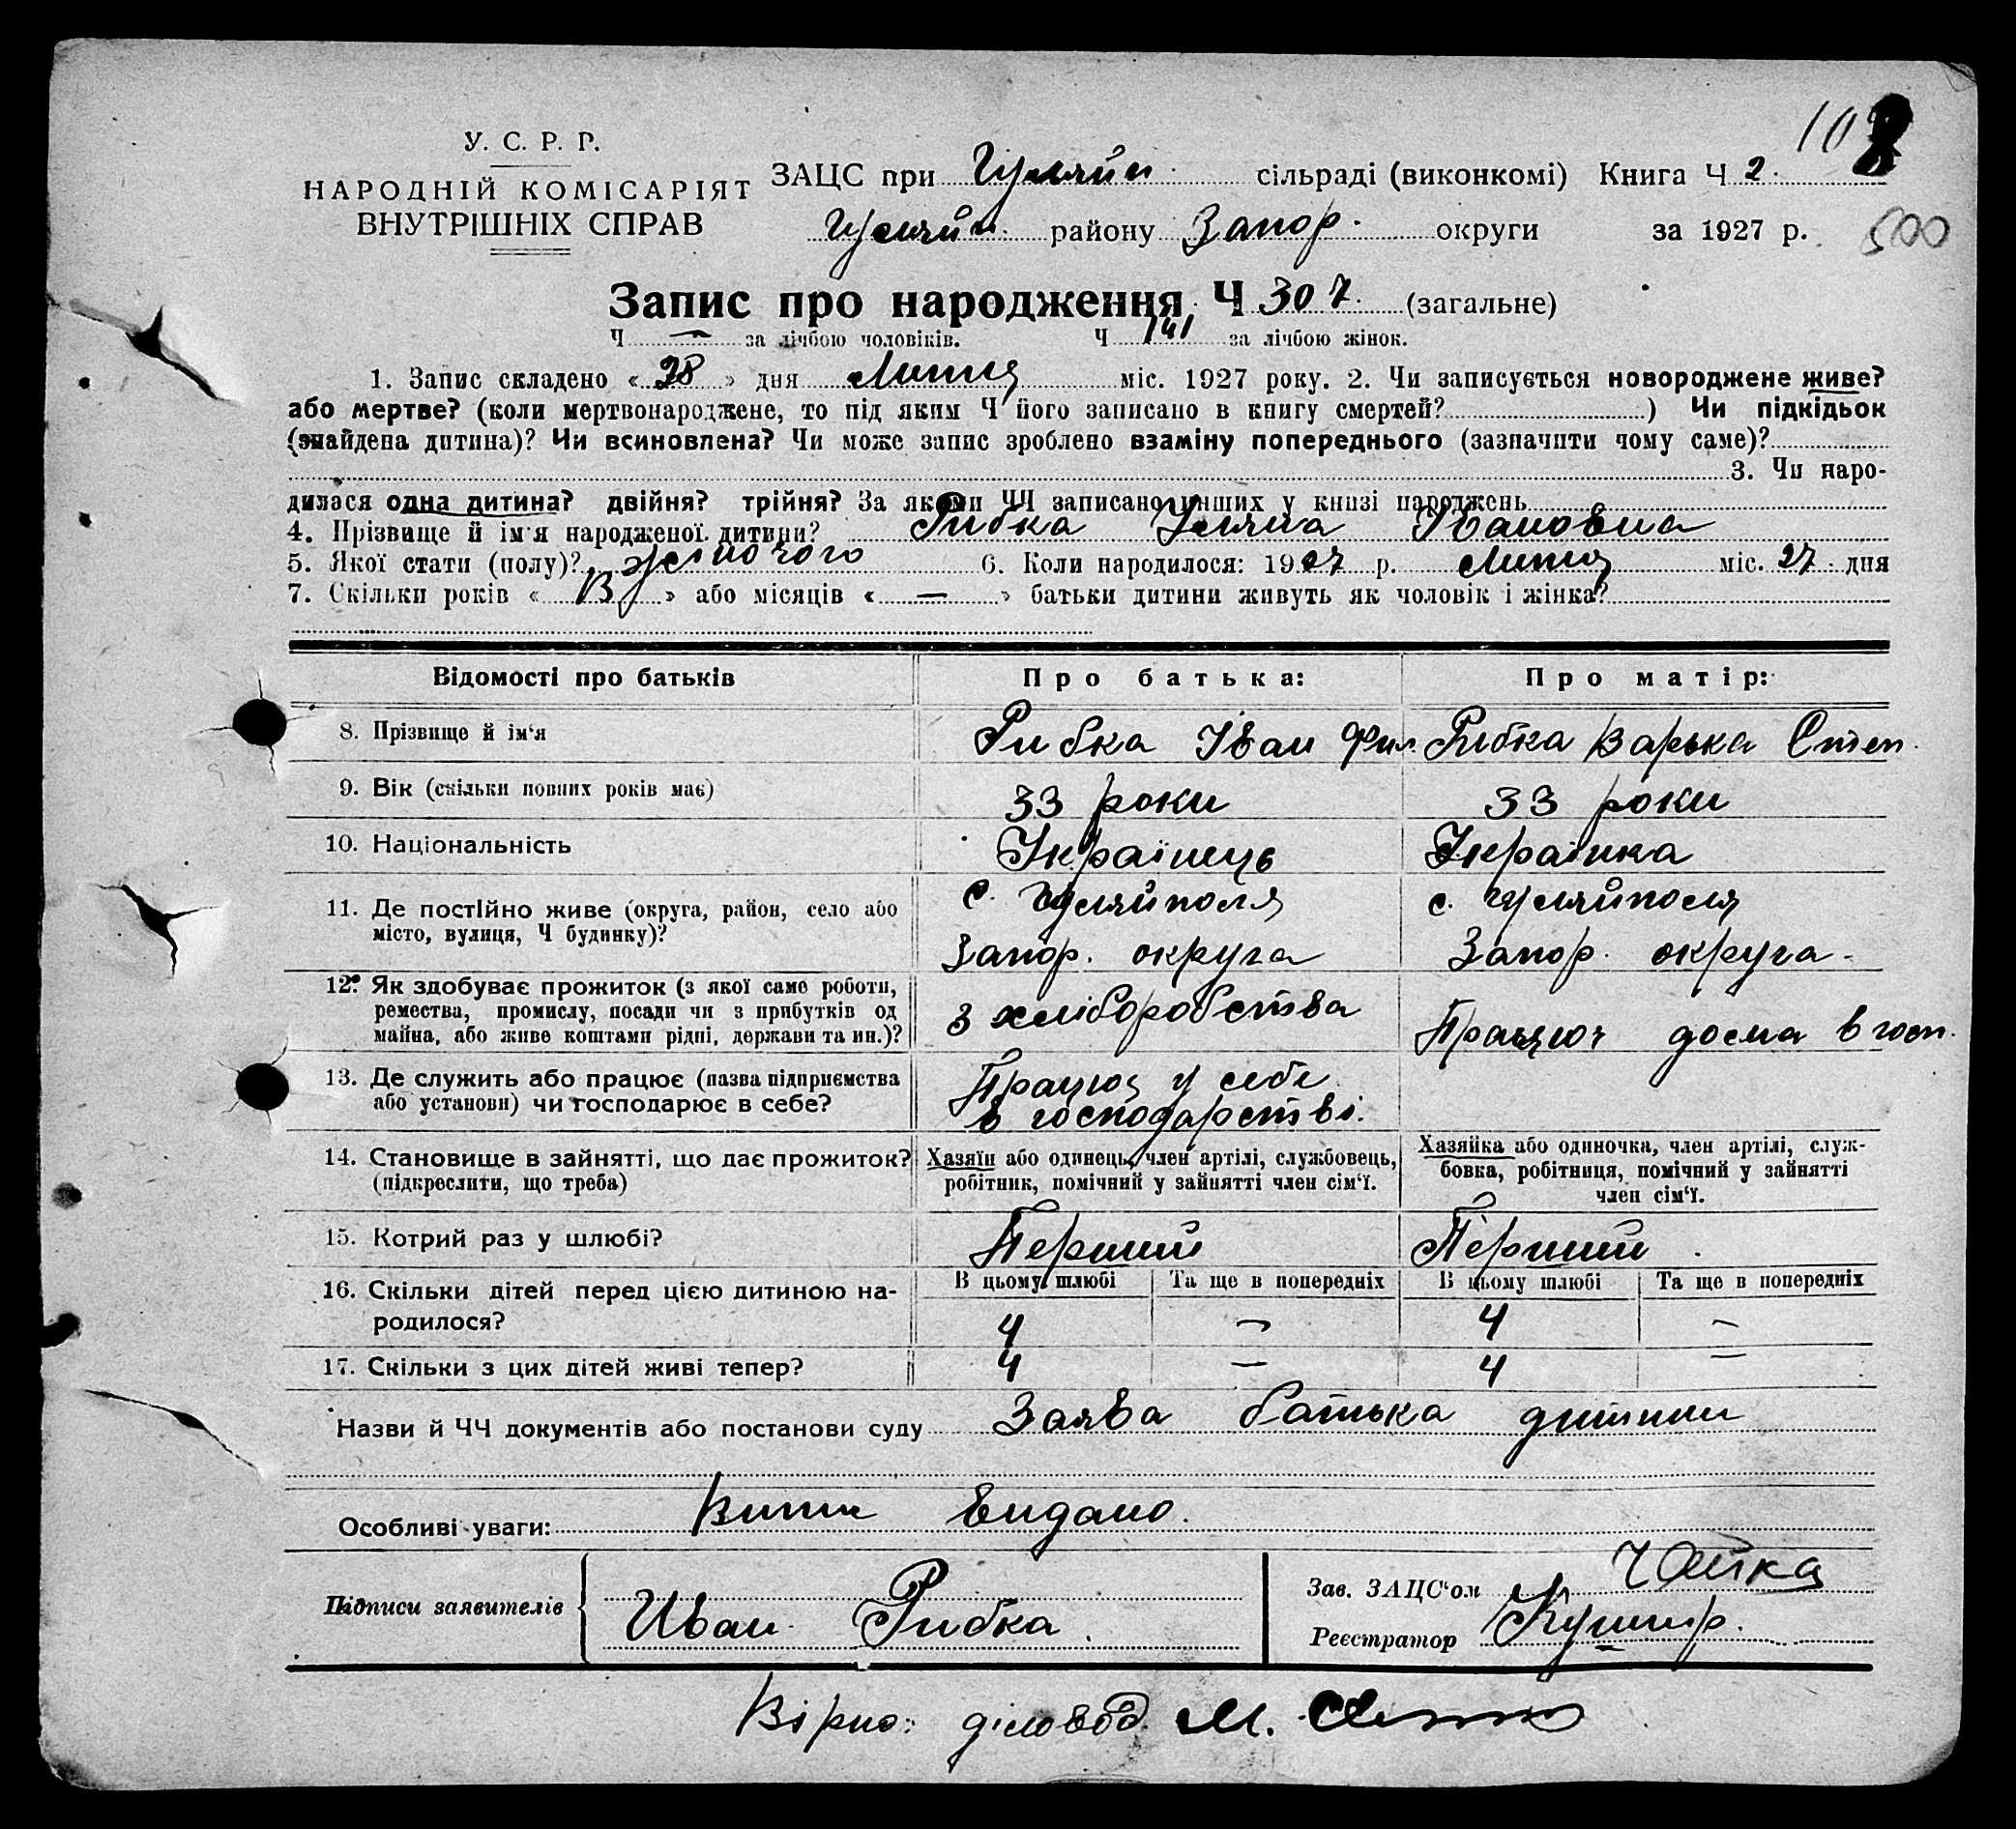 108
У. С. Р. Р.
НАРОДНІЙ КОМІСАРІЯТ
ВНУТРІШНІХ СПРАВ
ЗАЦС при Гуляйп. сільраді (виконкомі) Книга Ч 2.
Гуляйп. району Запор. округи за 1927 р.
500
Запис про народження Ч 307. (загальне)
Ч — за лічбою чоловіків. Ч 141 за лічбою жінок.
1. Запис складено «28» дня Липня міс. 1927 року. 2. Чи записується новороджене живе?
або мертве? (коли мертвонароджене, то під яким Ч його записано в книгу смертей? ) Чи підкідьок
(знайдена дитина)? Чи всиновлена? Чи може запис зроблено взаміну попереднього (зазначити чому саме)?
3. Чи наро-
дилася одна дитина? двійня? трійня? За якими ЧЧ записано инших у книзі народжень
4. Прізвище й ім'я народженої дитини? Рибка Уляна Івановна
5. Якої стати (полу)? жіночого 6. Коли народилося: 1927 р. Липня міс. 27. дня
7. Скільки років «13» або місяців «—» батьки дитини живуть як чоловік і жінка?
Відомості про батьків Про батька: Про матір:
8. Прізвище й ім'я Рибка Іван Фил Рибка Варька Степ.
9. Вік (скільки повних років має) 33 роки 33 роки
10. Національність Українець Українка
11. Де постійно живе (округа, район, село або
місто, вулиця, Ч будинку)?
с. Гуляйполя с. Гуляйполя
Запор. округа Запор. округа.
12. Як здобуває прожиток (з якої саме роботи,
ремества, промислу, посади чи з прибутків од
майна, або живе коштами рідні, держави та ин.)?
З хліборобства Працює дома в госп.
13. Де служить або працює (назва підприємства
або установи) чи господарює в себе?
Працює у себе
в господарстві.
14. Становище в зайнятті, що дає прожиток?
(підкреслити, що треба)
Хазяїн або одинець, член артілі, службовець,
робітник, помічний у зайнятті член сім'ї.
Хазяйка або одиночка, член артілі, служ-
бовка, робітниця, помічний у зайнятті
член сім'ї.
15. Котрий раз у шлюбі? Перший Перший
16. Скільки дітей перед цією дитиною на-
родилося?
В цьому шлюбі Та ще в попередніх В цьому шлюбі Та ще в попередніх
4 — 4 —
17. Скільки з цих дітей живі тепер? 4 — 4 —
Назви й ЧЧ документів або постанови суду Заява батька дитини
Особливі уваги: Витяг видано.
Підписи заявителів Иван Рибка.
Зав. ЗАЦС'ом Чайка
Реєстратор Кушнір.
Вірно: діловод. М.